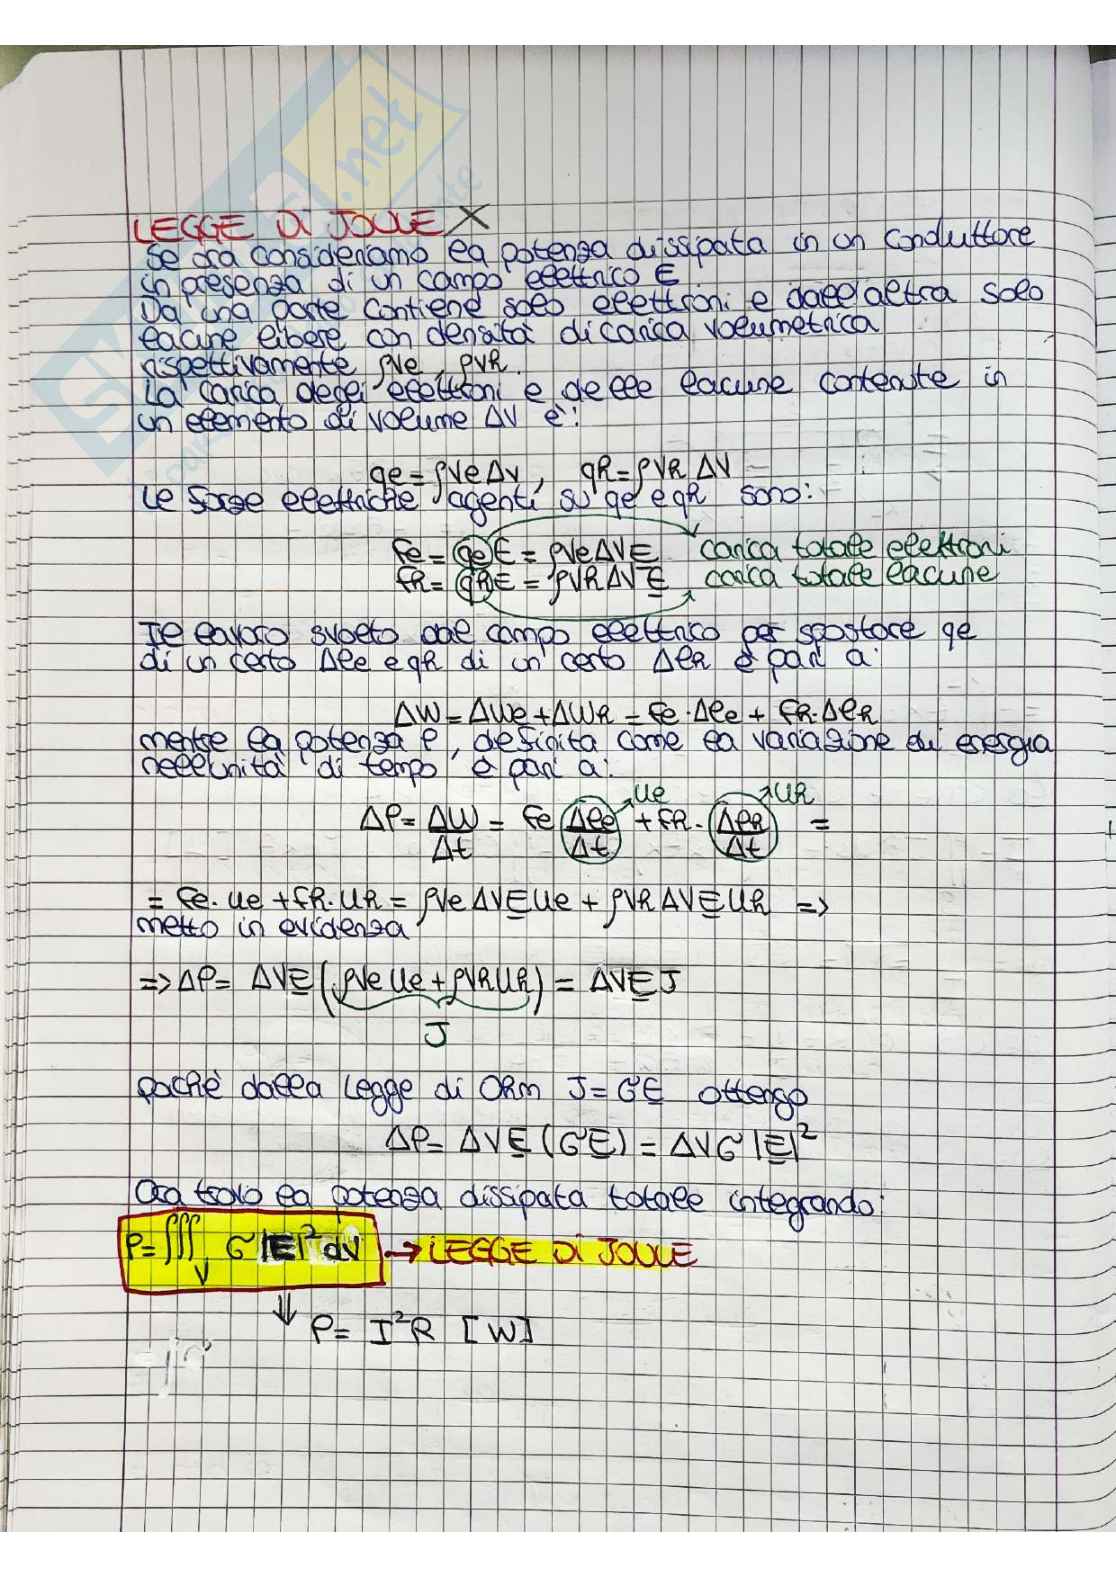 LEGGE DI JOULE X
Se ora consideriamo la potenza dissipata in un conduttore
in presenza di un campo elettrico E
Da una parte contiene solo elettroni e dall'altra solo
lacune libere con densità di carica volumetrica
rispettivamente ρve, ρvh.
La carica degli elettroni e delle lacune contenute in
un elemento di volume ΔV è:
qe = ρve Δv, qh = ρvh ΔV
Le forze elettriche agenti su qe e qh sono:
Fe = qe E = ρve ΔV E carica totale elettroni
Fh = qh E = ρvh ΔV E carica totale lacune
Il lavoro svolto dal campo elettrico per spostare qe
di un certo Δle e qh di un certo Δlh è pari a:
ΔW = ΔWe + ΔWh = Fe · Δle + Fh · Δlh
mentre la potenza P, definita come la variazione di energia
nell'unità di tempo è pari a:
ue uh
ΔP = ΔW/Δt = Fe Δle/Δt + Fh · Δlh/Δt =
= Fe · ue + Fh · uh = ρve ΔV E ue + ρvh ΔV E uh =>
metto in evidenza
=> ΔP = ΔV E (ρve ue + ρvh uh) = ΔV E J
J
poichè dalla Legge di Ohm J = σE ottengo
ΔP = ΔV E (σE) = ΔV σ |E|²
Ora trovo la potenza dissipata totale integrando:
P = ∭v σ |E|² dv → LEGGE DI JOULE
⇓ P = I²R [W]